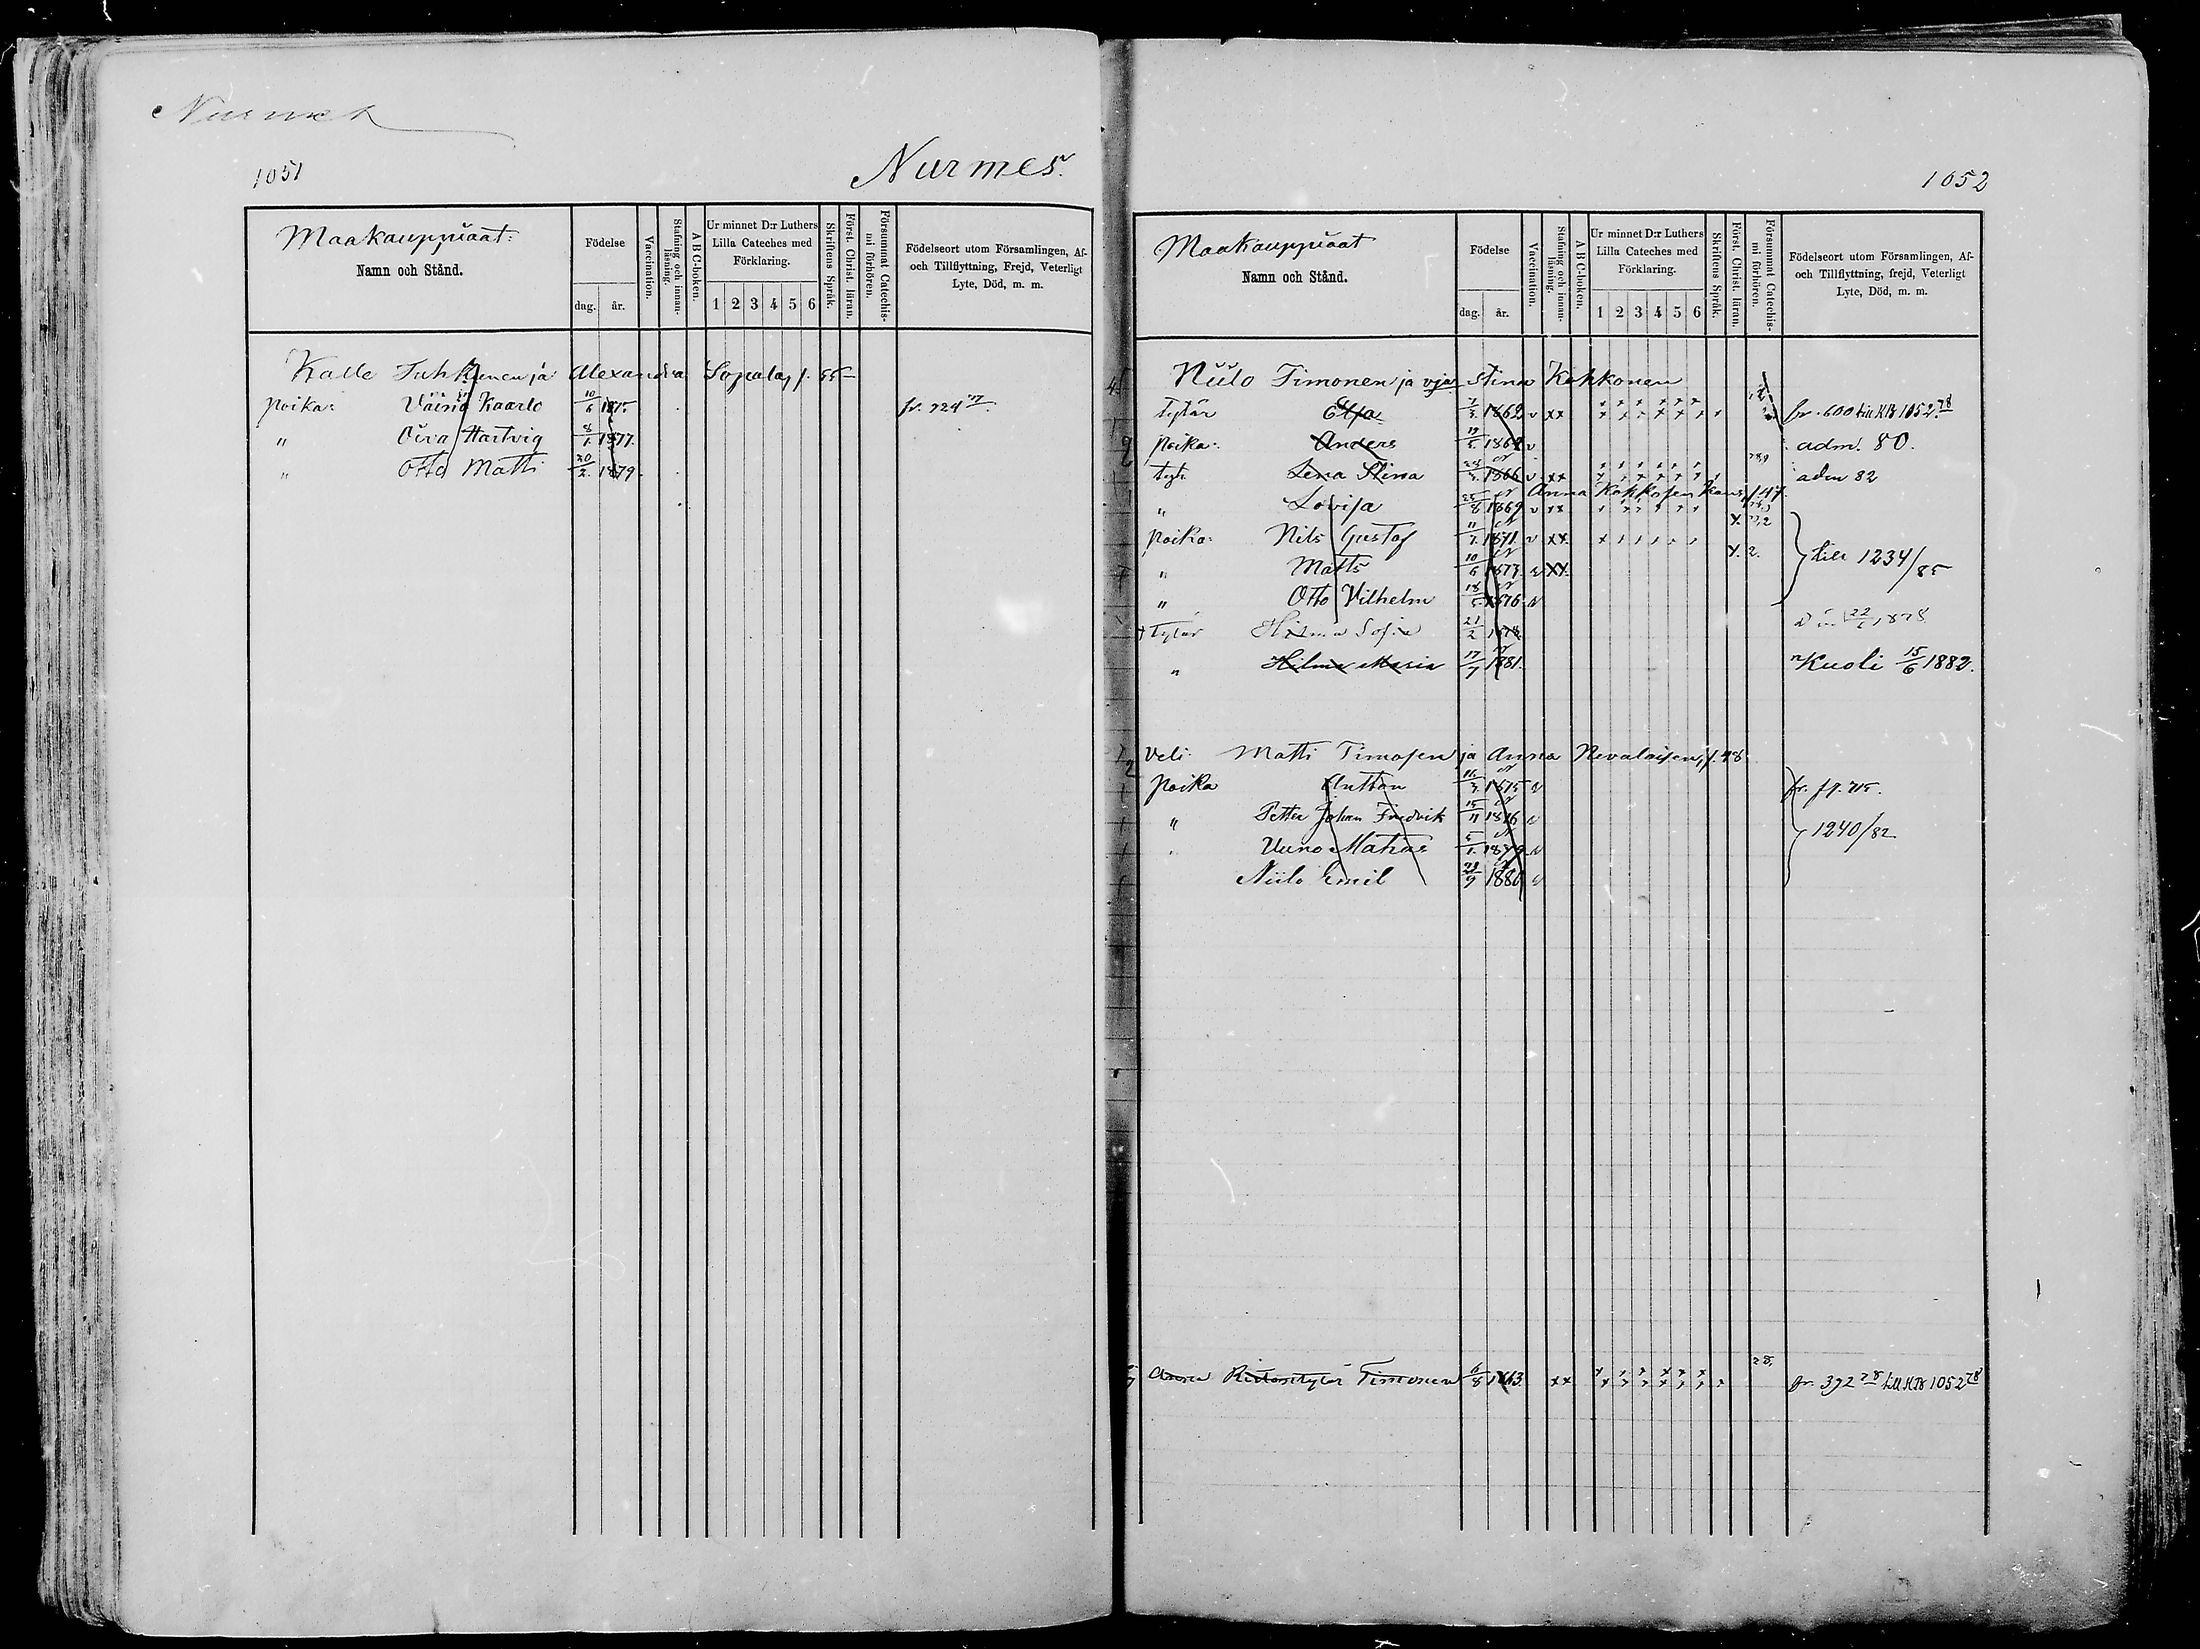 Nurmes
1051
Nurmes.
Maakauppiaat:
Namn och Stånd.
Födelse
dag. år.
Vaccination.
Stafning och innanläsning.
ABC-boken.
Ur minnet D:r Luthers Lilla Cateches med Förklaring.
1 2 3 4 5 6
Skriftens Språk.
Först. Christ. läran.
Försummat Catechismi förhören.
Födelseort utom Församlingen, Af- och Tillflyttning, Frejd, Veterligt Lyte, Död, m. m.
Kalle Tuhkunen ja Alexandra Sopala, f. 55
poika: Väinö Kaarlo 10/6 1875. fr. 724 77
" Oiva Hartvig 8/1 1877.
" Otto Matti 20/2 1879.
1052
Maakauppiaat
Namn och Stånd.
Födelse
dag. år.
Vaccination.
Stafning och innanläsning.
ABC-boken.
Ur minnet D:r Luthers Lilla Cateches med Förklaring.
1 2 3 4 5 6
Skriftens Språk.
Först. Christ. läran.
Försummat Catechismi förhören.
Födelseort utom Församlingen, Af- och Tillflyttning, frejd, Veterligt Lyte, Död, m. m.
Niilo Timonen ja vja Stina Kokkonen
Tytär Elsa 1862 v xx fr. 600 till KB 1052 78
poika: Anders 19/5 1864 v adm. 80.
tyt. Lena Stina 1866 v xx adm 82
Anna Kokkosen kans, f. 47.
" Lovisa 1869 v xx
poika: Nils Gustaf 11/7 1871. v xx
" Matts 10/6 1873 v xx till 1234/85
" Otto Vilhelm 18/5 1876 v
Tytär Hilma Sofia 21/2 1878
" Hilma Maria 17/7 1881. Kuoli 15/6 1882.
Veli: Matti Timosen ja Anna Nevalaisen, f. 48
poika Antton 1875 v fr.
" Petter Johan Fredrik 15/11 1876 v 1240/82
" Uuno Matias 5/1 1879 v
Niilo Emil 1880 v
Anna Ristontytär Timonen 6/8 1863. xx fr. 392 78 till KB 1052 78